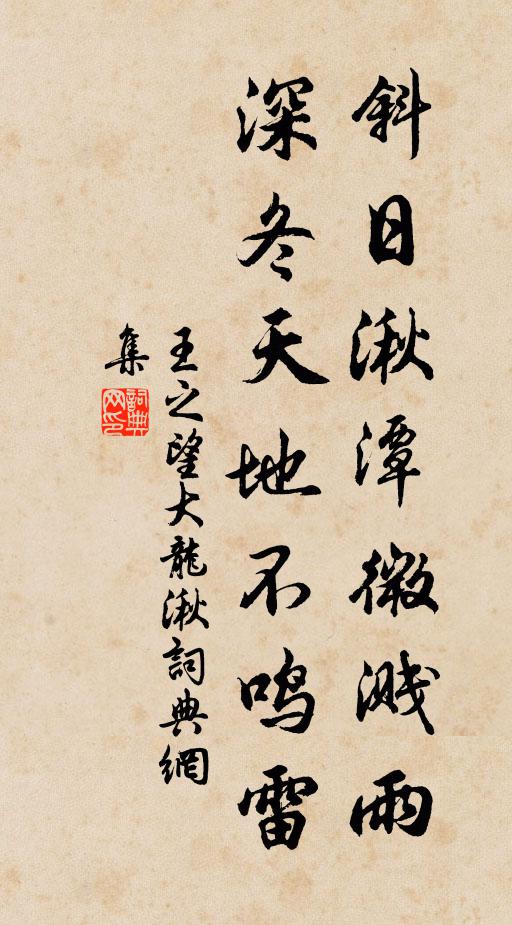 斜日湫潭微溅雨
深冬天地不鸣雷
王之望大龍湫詞典網
集
詞典
网印